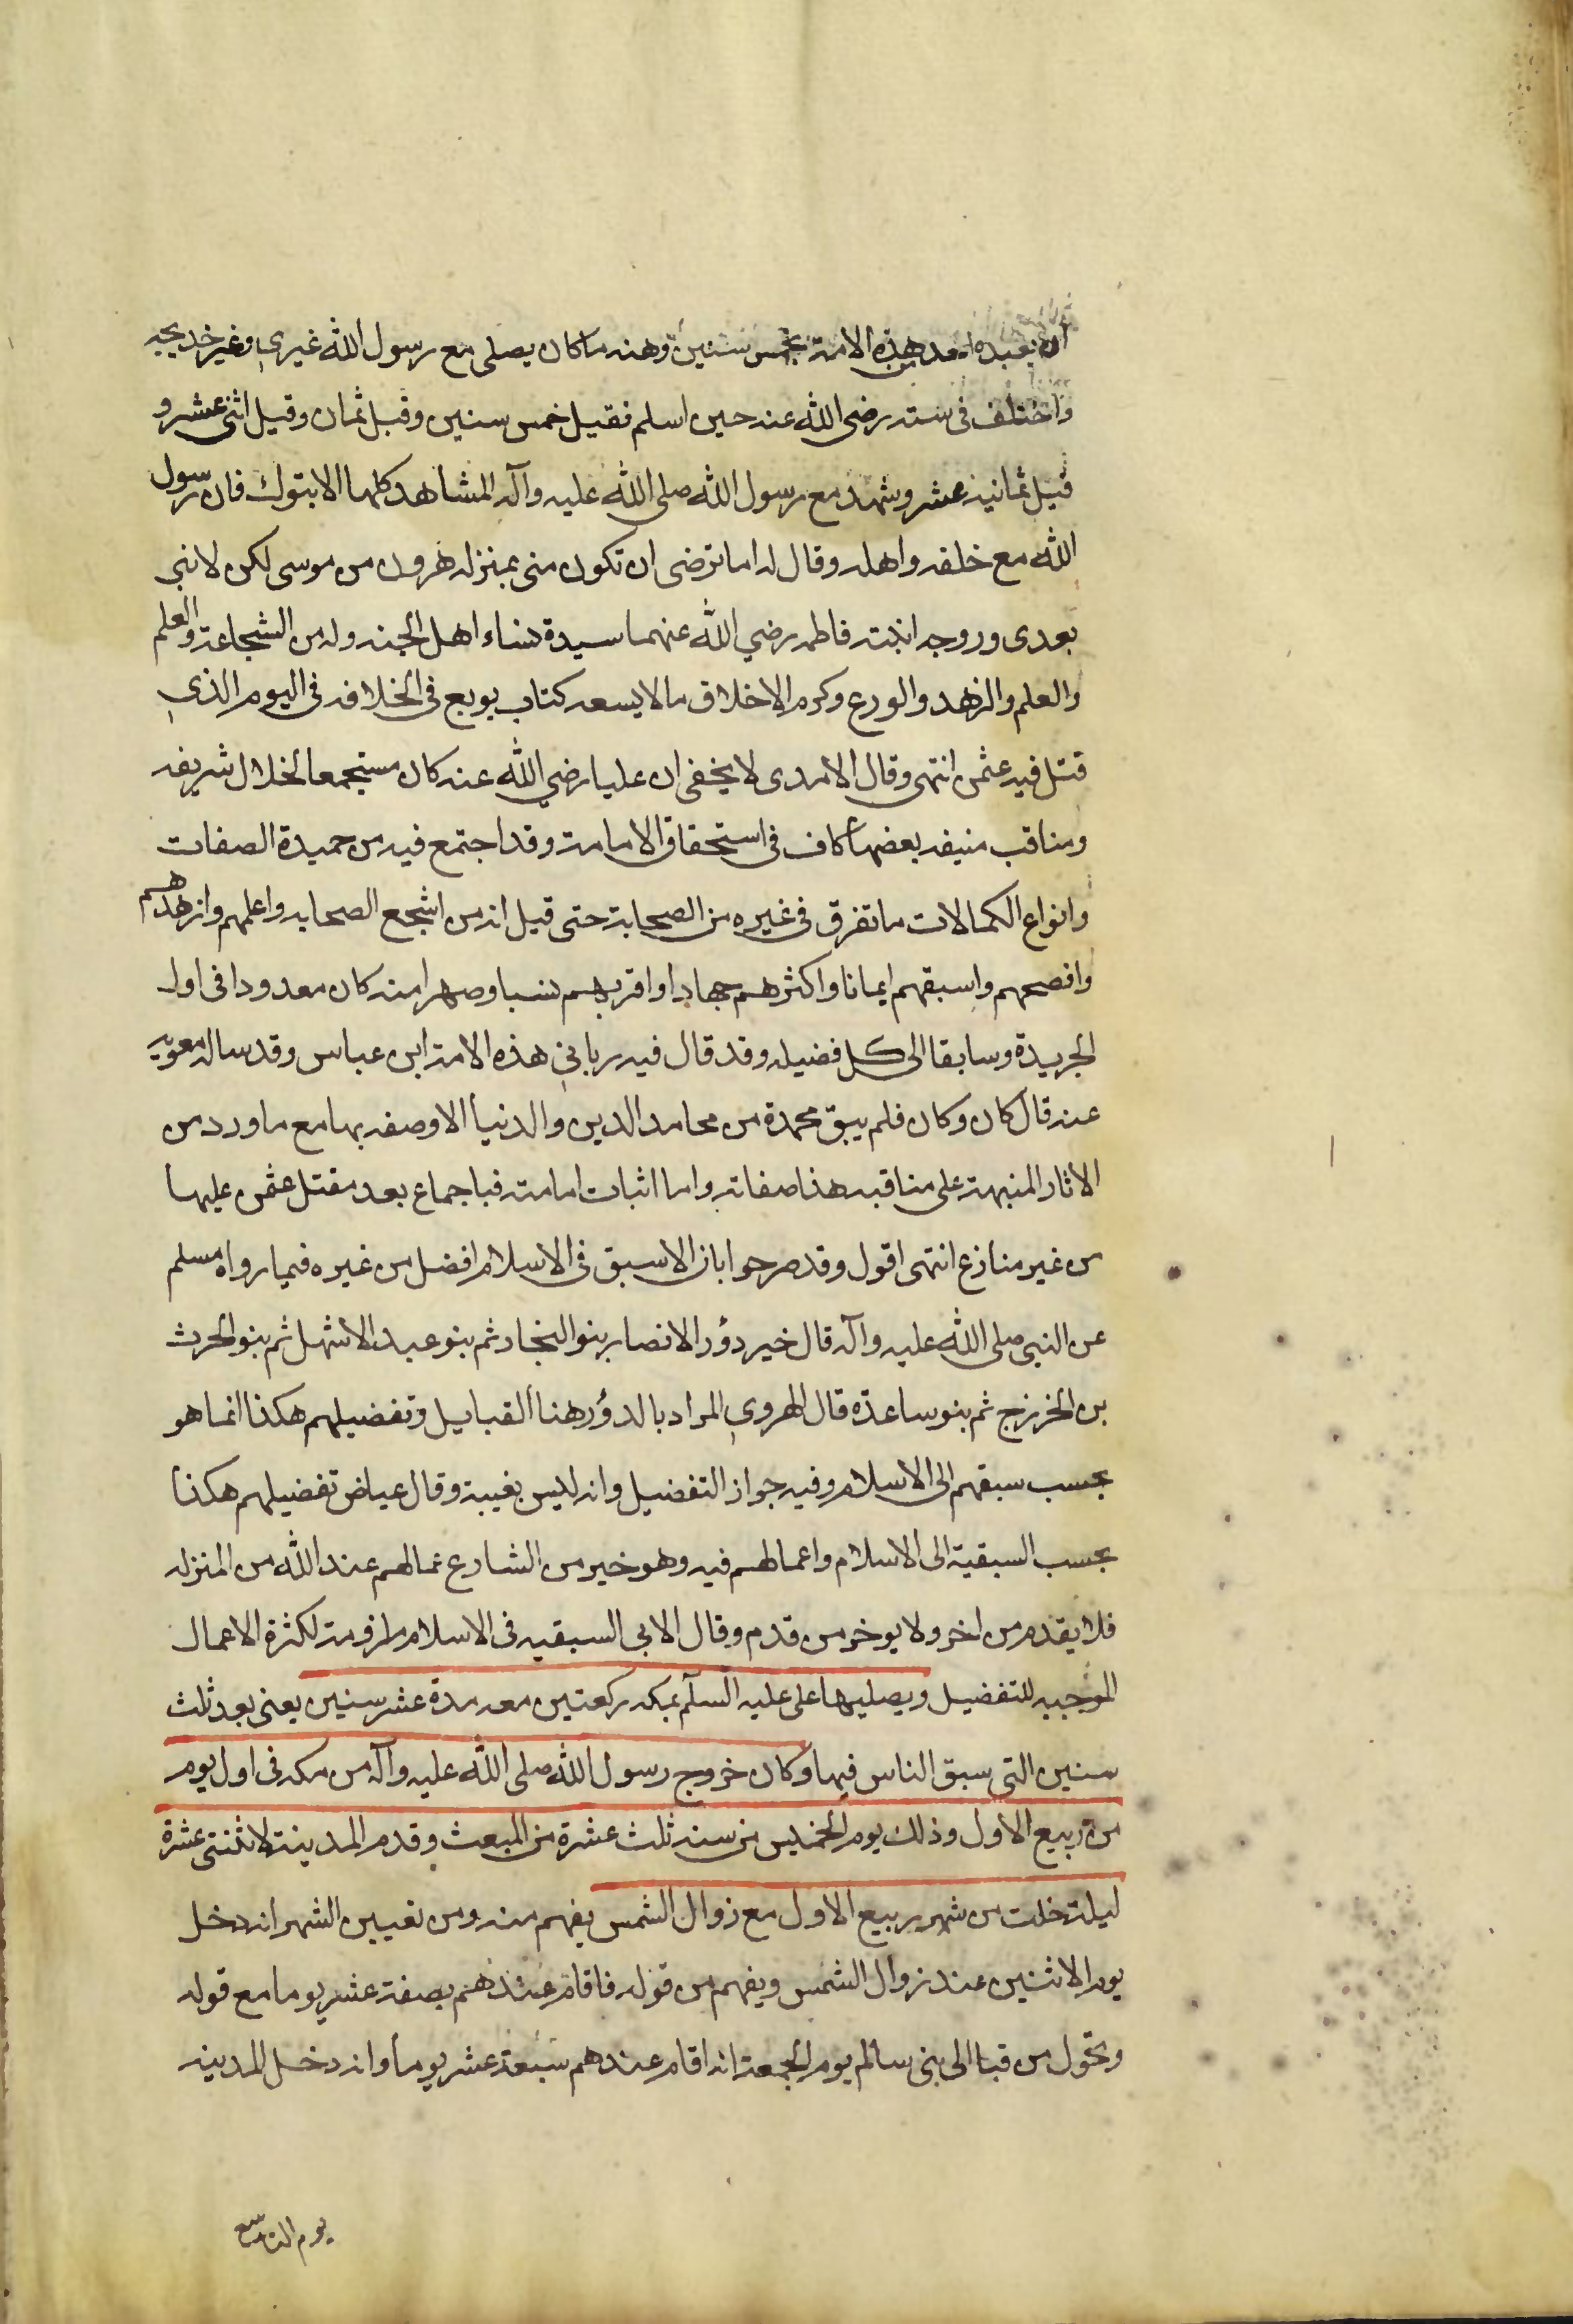 ان يعبده احد من هذه الامة بخمس سنين وعنه ما كان يصلى مع رسول الله غيري وغير خديجه
واختلف فى سنه رضى الله عنه حين اسلم فقيل خمس سنين وقيل ثمان وقيل اثنى عشر و
قيل ثمانية عشر وشهد مع رسول الله صلى الله عليه وآله المشاهد كلها الا بتوك فان رسول
الله مع خلفه واهله وقال له اما ترضى ان تكون منى بمنزله هرون من موسى لكن لا نبي
بعدى وزوجه ابنته فاطمه رضي الله عنهما سيدة نساء اهل الجنه وله من الشجاعة والعلم
والعلم والزهد والورع وكرم الاخلاق ما لا يسعه كتاب بويع فى الخلافه فى اليوم الذي
قتل فيه عثمن انتهى وقال الامدى لا يخفى ان عليا رضي الله عنه كان مستجمعا لخلال شريفه
ومناقب منيفه بعضها كاف فى استحقاق الامامة وقد اجتمع فيه من حميدة الصفات
وانواع الكمالات ما تفرق فى غيره من الصحابة حتى قيل انه من اشجع الصحابه واعلمهم وازهدهم
وافصحهم واسبقهم ايمانا واكثرهم جهادا واقربهم نسبا وصهرا منه كان معدودا فى اول
الجريدة وسابقا الى كل فضيله وقد قال فيه رباني هذه الامة ابن عباس وقد ساله معويه
عنه قال كان وكان فلم يبق محمدة من محامد الدين والدنيا الا وصفه بها مع ما ورد من
الاثار المنبهة على مناقبه هذا صفاته واما اثبات امامته فباجماع بعد مقتل عثمن عليها
من غير منازع انتهى اقول وقد صرحوا بان الاسبق فى الاسلام افضل من غيره فيما رواه مسلم
عن النبى صلى الله عليه وآله قال خير دؤر الانصار بنو النجار ثم بنو عبد الاشهل ثم بنو الحرث
بن الخزرج ثم بنو ساعدة قال الهروي المراد بالدؤر هنا القبايل وتفضيلهم هكذا انما هو
بحسب سبقهم الى الاسلام وفيه جواز التفضيل وانه ليس بغيبة وقال عياض تفضيلهم هكذا
بحسب السبقية الى الاسلام واعمالهم فيه وهو خير من الشارع عما لهم عند الله من المنزله
فلا يقدم من اخر ولا يوخر من قدم وقال الابى السبقيه فى الاسلام ملزومة لكثرة الاعمال
الموجبه للتفضيل ويصليها على عليه السلم بمكه ركعتين معه مدة عشر سنين يعنى بعد ثلث
سنين التى سبق الناس فيها وكان خروج رسول الله صلى الله عليه وآله من مكه فى اول يوم
من ربيع الاول وذلك يوم الخميس من سنه ثلث عشرة من المبعث وقدم المدينة لاثنتى عشرة
ليلة خلت من شهر ربيع الاول مع زوال الشمس يفهم منه ومن تعيين الشهر انه دخل
يوم الاثنين عند زوال الشمس ويفهم من قوله فاقام عندهم بضعة عشر يوما مع قوله
وتحول من قبا الى بنى سالم يوم الجمعة انه اقام عندهم سبعة عشر يوما وانه دخل المدينه
يوم التاسع